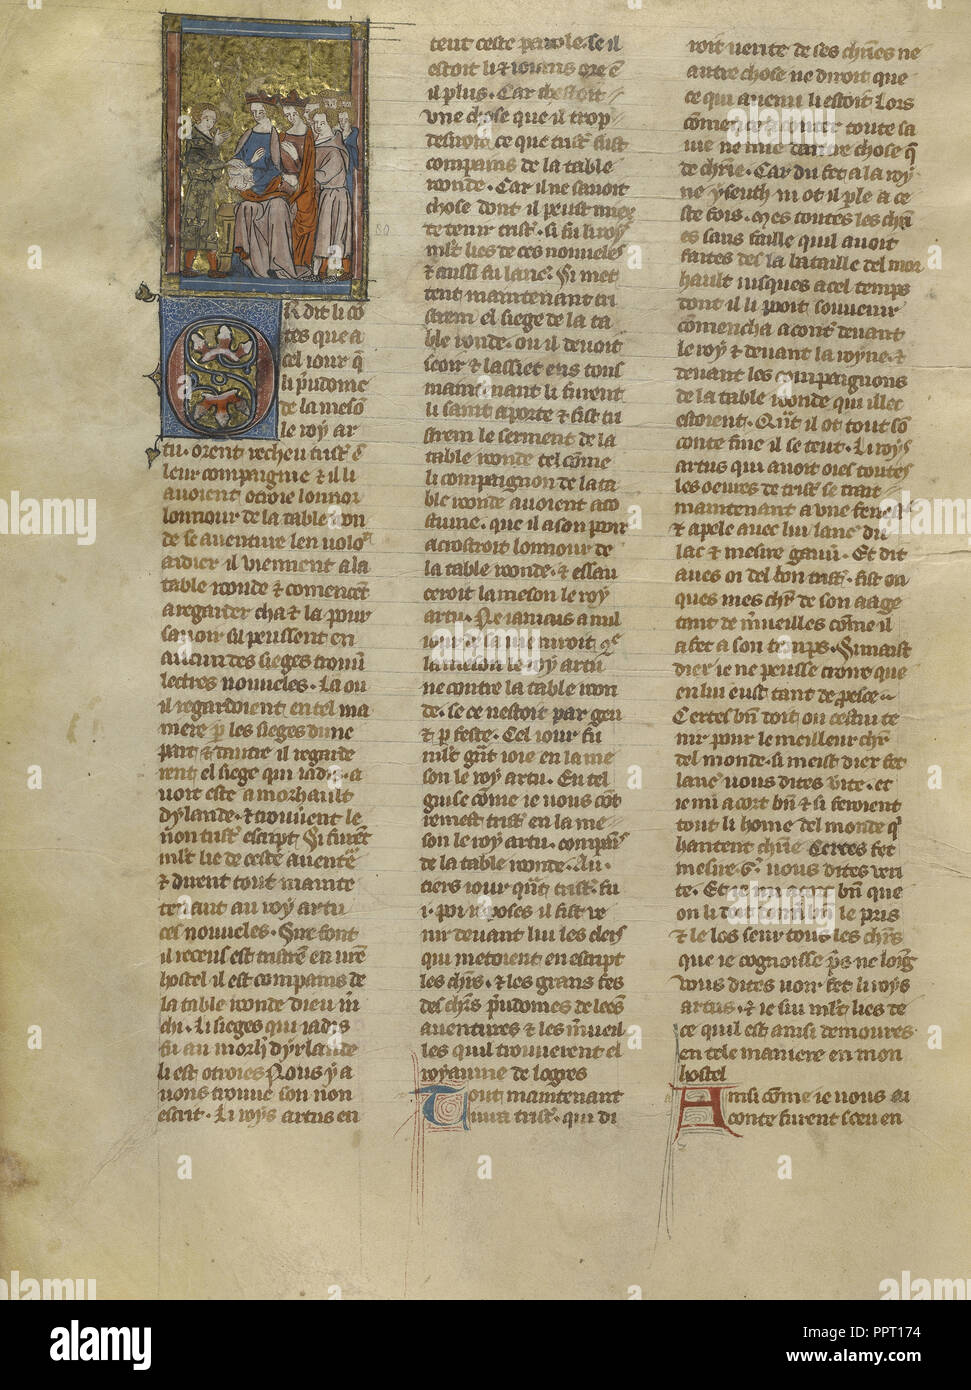 Or dit li co
tes que a
cel iour q̄
li p̄udome
de la mesō
le roy ar
tu. orent receu trist̄ ē
leur compaignie & il li
auoient otroie lonnor
lonnour de la table ron
de se auenture len uolo
aidier il uiennent a la
table ronde & comencēt
a regarder cha & la pour
sauoir sil peussent en
aucun des sieges trouū
lectres nouueles. La ou
il regardoient en tel ma
niere p̄ les sieges dune
part & dautre il regarde
rent el siege qui iadis a
uoit este a morhault
dyrlande. & trouuent le
nōn trist̄ escript. Si furēt
ml̄t lie de ceste auentē
& dirent tout mainte
tenant au roy artu
ces nouueles. Sire font
il receus est tristrē en ur̄e
hostel il est compains de
la table ronde dieu m̄
chi. Li sieges qui iadis
fu au morh̄ dyrlande
li est otroies Nous y a
uons trouue son non
escrit. Li roys artus en
tent ceste parole. se il
estoit li & ioians ore ē
il plus. Car chestoit
vne chose que il trop
desiroit ce que trist̄ fust
compains de la table
ronde. Car il ne sauoit
chose dont il peust miex
retenir trist̄. si fu li roy
ml̄t lies de ces nouueles
& aussi fu lanc̄. Si met
tent maintenant tri
strem el siege de la ta
ble ronde. ou il deuoit
seoir & lassiet ens tout
maintenant li furent
li saint aporte & fist tri
strem le serment de la
table ronde tel cōme
li compaignon de la ta
ble ronde auoient aco
stume. que il a son pooir
acroistroit lonnour de
la table ronde. & essau
ceroit la meson le roy
artu. Ne iamais a nul
iour
la meson le roy artu
ne contre la table ron
de. se ce nestoit par geu
& p̄ feste. Cel iour fu
ml̄t gr̄t ioie en la me
son le roy artu. En tel
guise cōme ie uous cōt
remest trist̄ en la me
son le roy artu. compaīs
de la table ronde. Au
tiers iour qn̄t trist̄ fu
i. poi reposes il fist ve
nir deuant lui les clers
qui metoient en escript
les ch̄rs. & les grans fes
des ch̄rs p̄udomes de leēs
auentures & les m̄ueil
les quil trouuerent el
royaume de logres
Tout maintenant
iura trist̄. qui di
roit uerite de ses ch̄ries ne
autre chose ne diroit que
ce qui auenu li estoit Lors
cōmence a conter toute sa
uie ne mie dautre chose q̄
de ch̄rie. Car du fet a la roy
ne yseuth ni ot il ple a ce
ste fois. Mes toutes les ch̄ri
es sans faille quil auoit
faites des la bataille del mor
hault iusques a cel temps
dont il li pooit souuenir
cōmencha a cont̄ deuant
le roy & deuant la royne. &
deuant les compaignons
de la table ronde qui illec
estoient. Qn̄t il ot tout sō
conte fine il se teut. Li roys
artus qui auoit oies toutes
les oeures de trist̄ se trait
maintenant a vne fene
& apele auec lui lanc̄ du
lac & mesire gauū. Et dit
aues oi del bon trist̄. fist on
ques mes ch̄r de son aage
tant de m̄ueilles cōme il
a fet a son temps. Si maist
dieu ie ne peusse croire que
en lui eust tant de p̄esce
Certes bn̄ doit on cestui te
nir pour le meilleur ch̄r
del monde. si meist dieu fet
lanc̄ uous dites uoir. et
ie mi acort bn̄ & si feroient
tout li home del monde q̄
hantent ch̄rie Certes fet
mesire G. uous dites veri
te. Et ie mi acort bn̄ que
on li doit doner bn̄ le pris
& le los seur tous les ch̄rs
que ie cognoisse p̄s ne loing
Vous dites uoir fet li roys
artus. & ie sui ml̄t lies de
ce quil est ainsi demoures
en tele maniere en mon
hostel
Ainsi cōme ie uous ai
conte furent sceu en
alamy
alamy
Image ID: PPT174
www.alamy.com